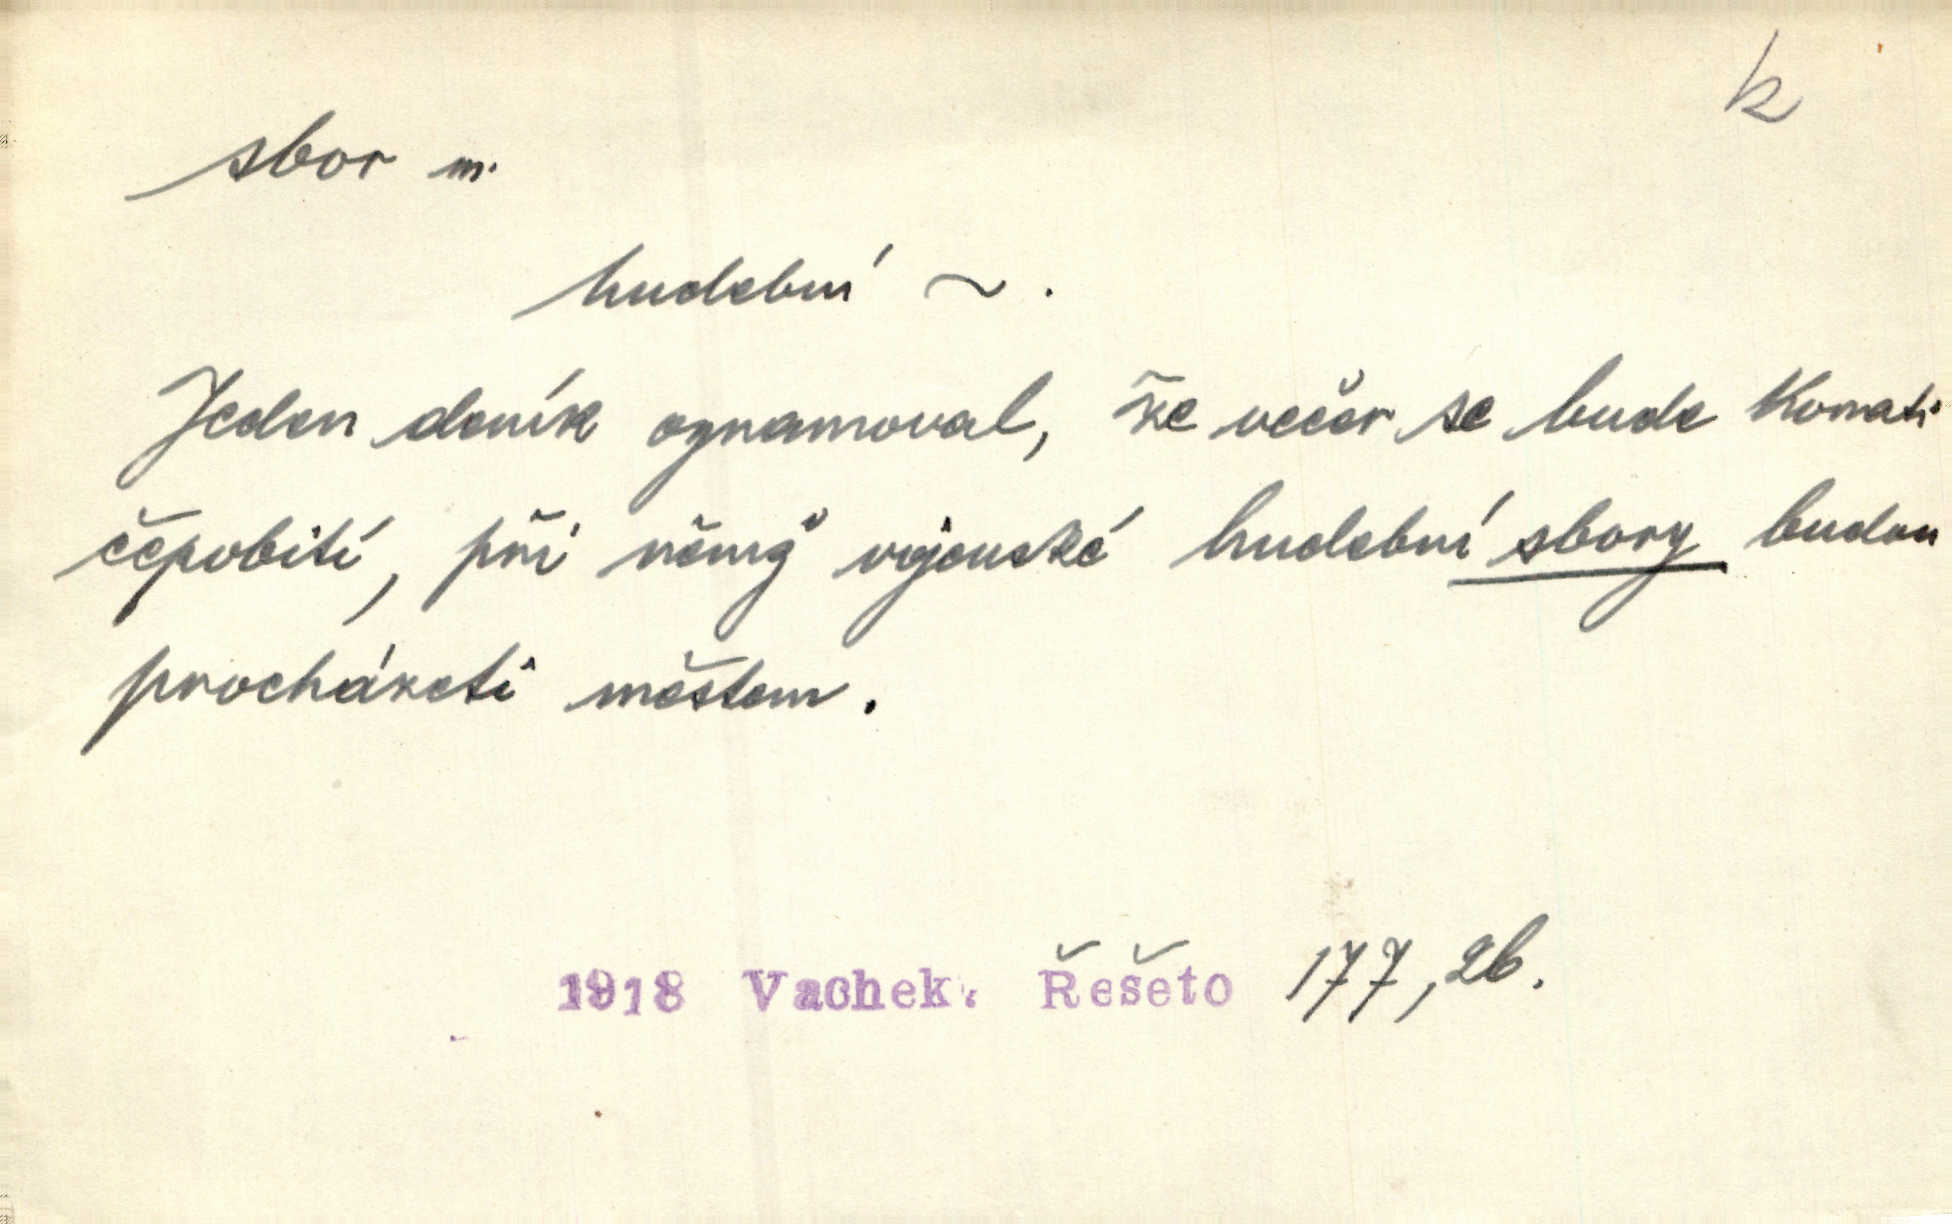 k
sbor m.
hudební ~.
Jeden deník oznamoval, že večer se bude konati
čepobití, při němž vojenské hudební sbory budou
procházeti městem.
1918 Vachek. Řešeto 177, 26.